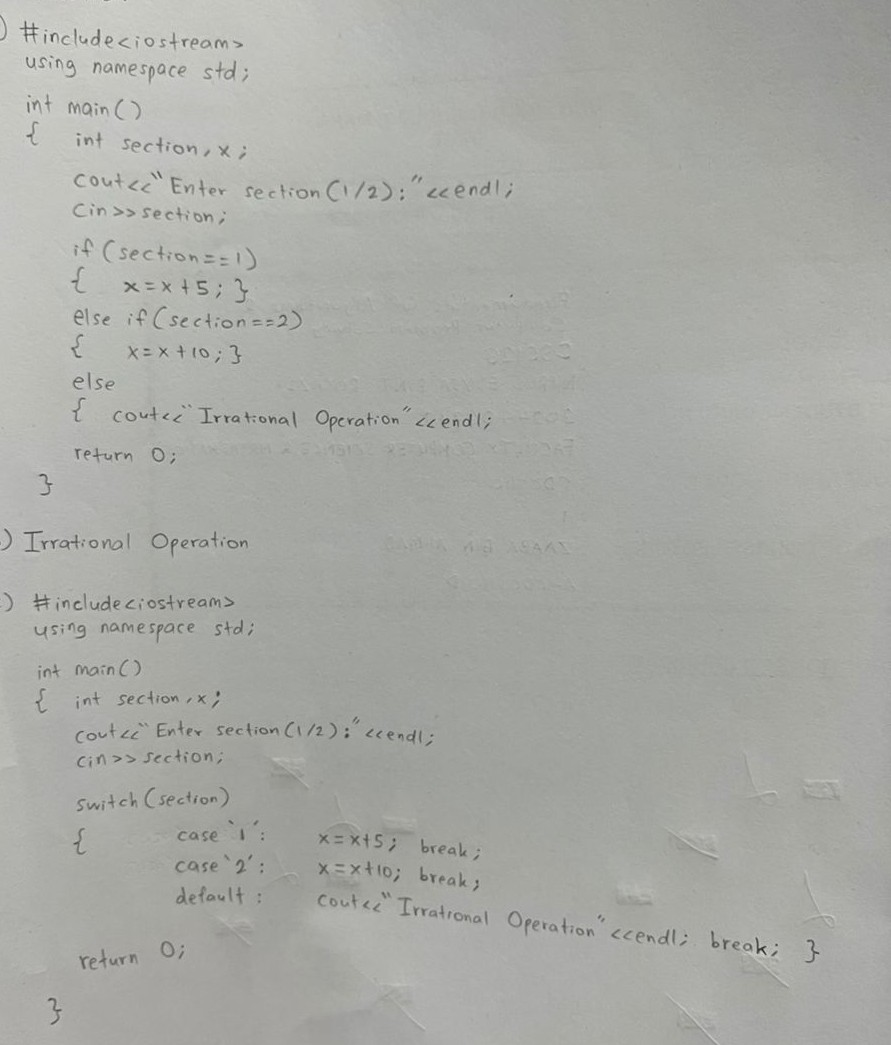 ) #include<iostream>
using namespace std;
int main()
{ int section, x;
cout<<"Enter section(1/2):"<<endl;
cin>>section;
if (section==1)
{ x=x+5; }
else if(section==2)
{ x=x+10; }
else
{ cout<<"Irrational Operation"<<endl;
return 0;
}
) Irrational Operation
) #include<iostream>
using namespace std;
int main()
{ int section, x;
cout<<"Enter section(1/2):"<<endl;
cin>>section;
switch(section)
{ case '1': x=x+5; break;
case '2': x=x+10; break;
default: cout<<"Irrational Operation"<<endl; break; }
return 0;
}